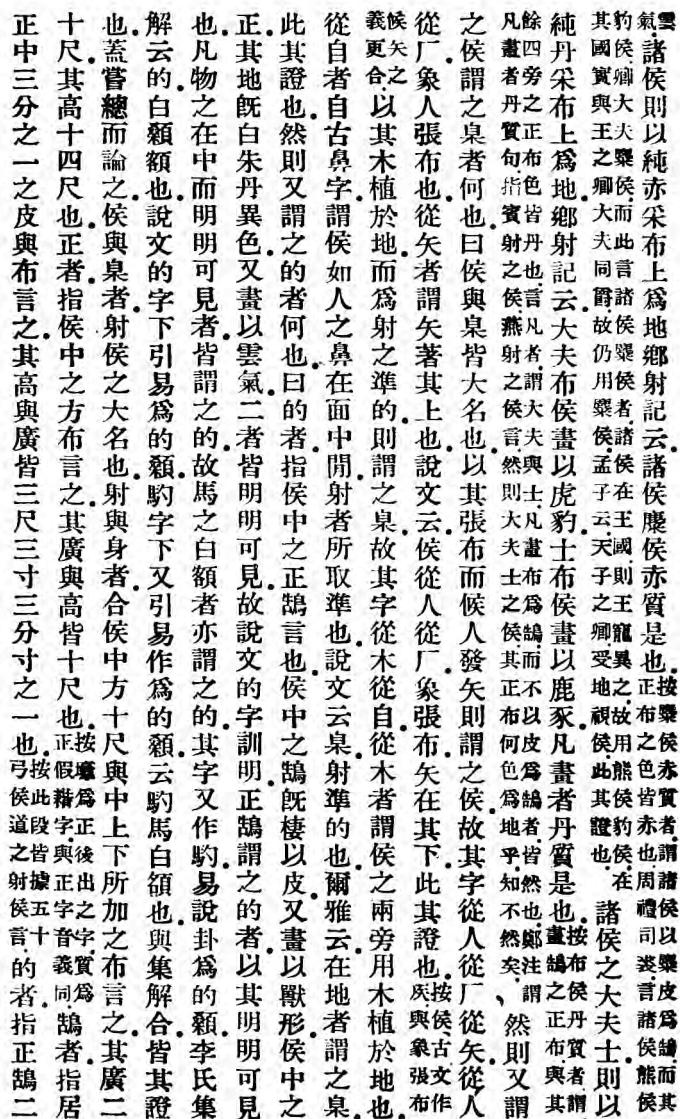 雲氣諸侯則以純赤采布上爲地鄉射記云諸侯麋侯赤質是也按麋侯赤質者謂諸侯以麋皮爲鵠而其正布之色皆赤也周禮司裘言諸侯熊侯
豹侯卿大夫麋侯而此言諸侯麋侯者諸侯在王國則王寵異之故用熊侯豹侯在其國實與王之卿大夫同爵故仍用麋侯孟子云天子之卿受地視侯此其證也諸侯之大夫士則以
純丹采布上爲地鄉射記云大夫布侯畫以虎豹士布侯畫以鹿豕凡畫者丹質是也按布侯丹質者謂畫鵠之正布與其
餘四旁之正布色皆丹也言凡者謂大夫與士凡畫布爲鵠而不以皮爲鵠者皆然也鄭注謂凡畫者丹質句指賓射之侯燕射之侯言然則大夫士之侯其正布何色爲地乎知不然矣、然則又謂
之侯謂之臬者何也曰侯與臬皆大名也以其張布而候人發矢則謂之侯故其字從人從厂從矢從人
從厂象人張布也從矢者謂矢著其上也說文云侯從人從厂象張布矢在其下此其證也按侯古文作矦與象張布
候矢之義更合以其木植於地而爲射之準的則謂之臬故其字從木從自從木者謂侯之兩旁用木植於地也
從自者自古鼻字謂侯如人之鼻在面中閒射者所取準也說文云臬射準的也爾雅云在地者謂之臬
此其證也然則又謂之的者何也曰的者指侯中之正鵠言也侯中之鵠旣棲以皮又畫以獸形侯中之
正其地旣白朱丹異色又畫以雲氣二者皆明明可見故說文的字訓明正鵠謂之的者以其明明可見
也凡物之在中而明明可見者皆謂之的故馬之白額者亦謂之的其字又作馰易說卦爲的顙李氏集
解云的白顙額也說文的字下引易爲的顙馰字下又引易作爲的顙云馰馬白頟也與集解合皆其證
也蓋嘗總而論之侯與臬者射侯之大名也射與身者合侯中方十尺與中上下所加之布言之其廣二
十尺其高十四尺也正者指侯中之方布言之其廣與高皆十尺也按壔爲正後出之字實爲正假藉字與正字音義同鵠者指居
正中三分之一之皮與布言之其高與廣皆三尺三寸三分寸之一也按此段皆據五十弓侯道之射侯言的者指正鵠二